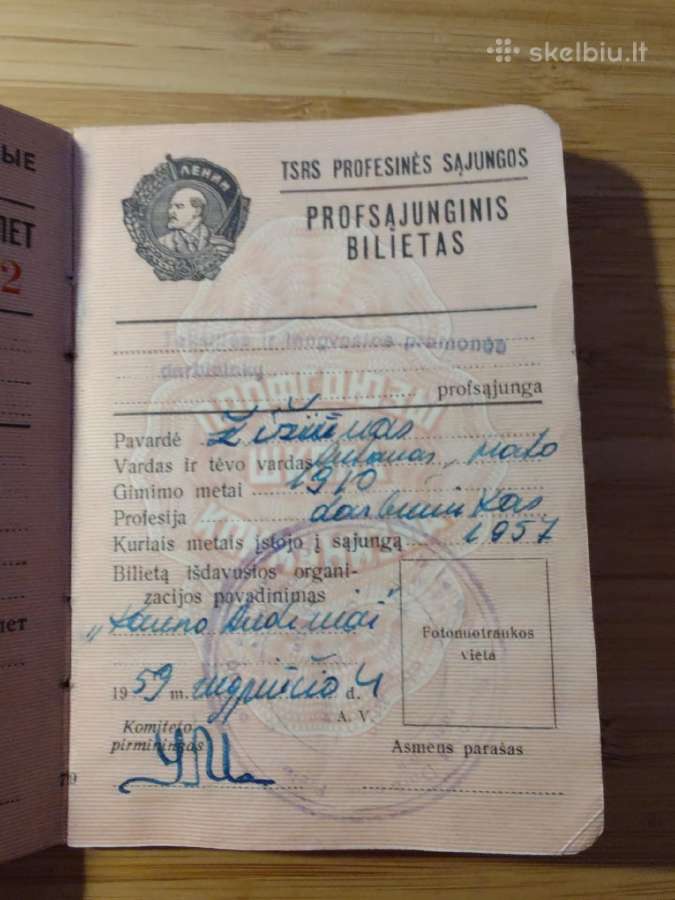 skelbiu.lt
ЫЕ
ЛЕТ
2
лет
79
ЛЕНИН
TSRS PROFESINĖS SĄJUNGOS
PROFSĄJUNGINIS
BILIETAS
Tekstilės ir lengvosios pramonės
darbininkų
profsąjunga
Pavardė Žižiūnas
Vardas ir tėvo vardas Mato
Gimimo metai 1910
Profesija darbininkas
Kuriais metais įstojo į sąjungą 1957
Bilietą išdavusios organi-
zacijos pavadinimas
„Kauno Audiniai"
Fotonuotraukos
vieta
1959 m. rugpiučio d. 4
A. V.
Komiteto
pirmininkas
Asmens parašas